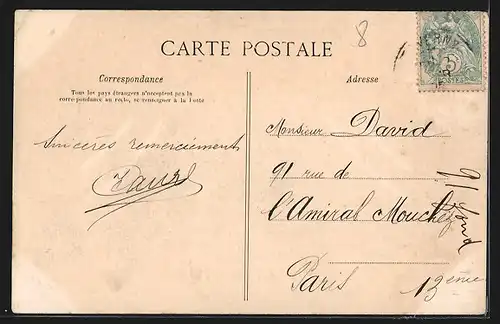 8
CARTE POSTALE
Correspondance
Tous les pays étrangers n'acceptent pas la
correspondance au recto, se renseigner à la Poste
Sincères remerciements
Adresse
Monsieur David
91 rue de
l'Amiral Mouchez
Paris 13ème
91
5
POSTES